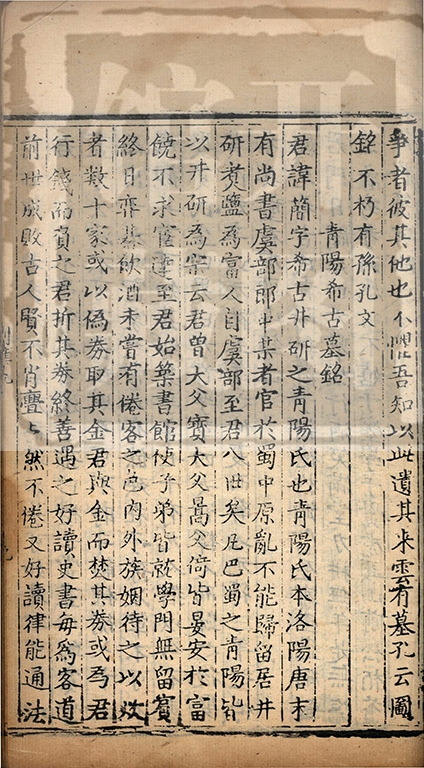 爭者彼其他也不懼吾知以此遺其米雲有墓孔云圖
銘不朽有孫孔文
青陽希古墓銘
君諱簡字希古井研之青陽氏也青陽氏本洛陽唐末
有尚書虞部郎中某者官於蜀中原亂不能歸留居井
研煑鹽為富人自虞部至君八世矣凡巴蜀之青陽皆
以井研為宗云君曾大父寶大父暠父倚皆晏安於富
饒不求宦達至君始築書館使子弟皆就學門無留賓
終日弈棊飲酒未嘗有倦客之色內外族姻待之以炊
者數十家或以偽券取其金君與金而焚其券或為君
行錢而負之君折其券終善遇之好讀史書每為客道
前世成敗古人賢不肖亹亹然不倦又好讀律能通法